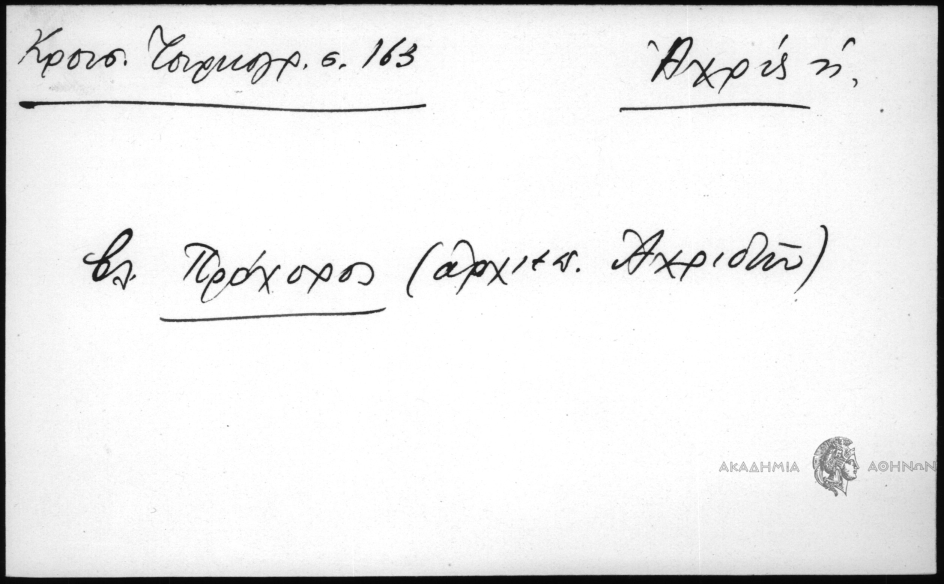 Κρουσ. Τουρκογρ. σ. 163 Ἀχρίς ἡ,
βλ. Πρόχορος (ἀρχιεπ. Ἀχριδῶν)
ΑΚΑΔΗΜΙΑ ΑΘΗΝΩΝ